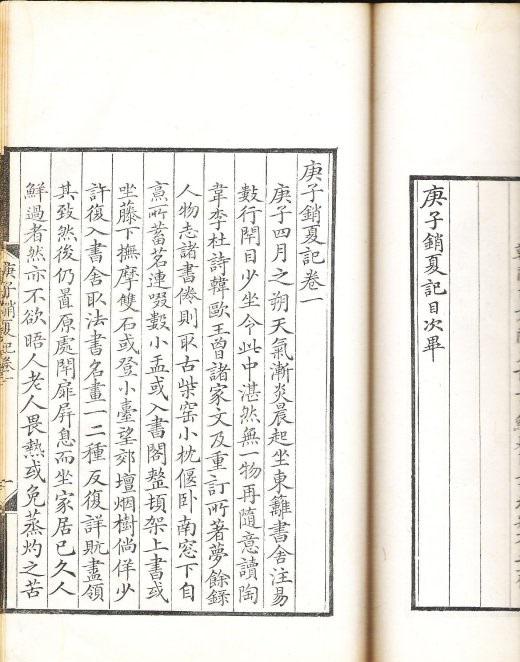 庚子銷夏記目次畢
庚子銷夏記卷一
庚子四月之朔天氣漸炎晨起坐東籬書舍注易
數行閉目少坐令此中湛然無一物再隨意讀陶
韋李杜詩韓歐王曾諸家文及重訂所著夢餘錄
人物志諸書倦則取古柴窰小枕偃卧南窓下自
烹所蓄茗連啜數小盂或入書閣整頓架上書或
坐藤下撫摩雙石或登小臺望郊壇烟樹倘佯少
許復入書舍取法書名畫一二種反復詳玩盡領
其致然後仍置原處閉扉屏息而坐家居已久人
鮮過者然亦不欲晤人老人畏熱或免蒸灼之苦
庚子銷夏記卷一
一